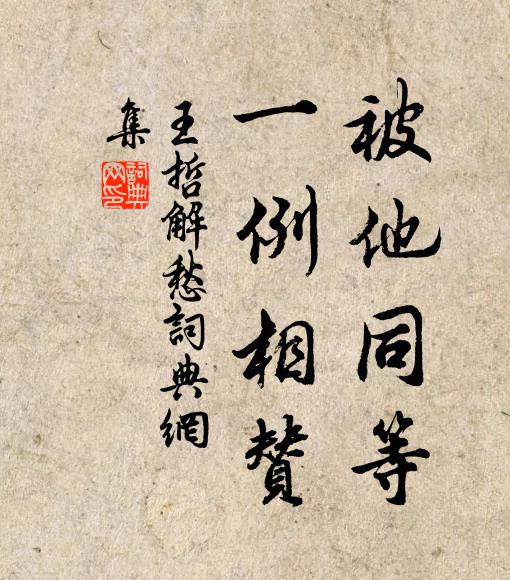 被他同等
一例相贊
王哲解愁詞典網
集
詞典
网印